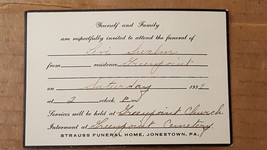 Yourself and Family
are respectfully invited to attend the funeral of
from residence Greenpoint
on Saturday 19
at 2 o'clock
Services will be held at Greenpoint Church
Interment at Greenpoint Cemetery
STRAUSS FUNERAL HOME, JONESTOWN, PA.